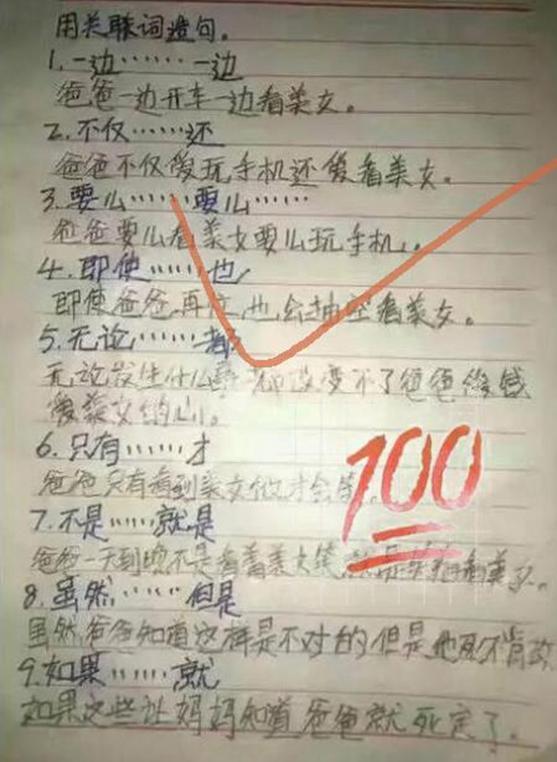 用关联词造句。
1.一边……一边
爸爸一边开车一边看美女。
2.不仅……还
爸爸不仅爱玩手机还爱看美女。
3.要么……要么……
爸爸要么看美女要么玩手机。
4.即使……也
即使爸爸再忙也会抽空看美女。
5.无论……都
无论发生什么事都改变不了爸爸
爱美女的心。
6.只有……才
爸爸只有看到美女他才会笑。
7.不是……就是
爸爸一天到晚不是看着美女笑,就是
8.虽然……但是
虽然爸爸知道这样是不对的但是他死不肯改
9.如果……就
如果这些让妈妈知道爸爸就死定了。
100